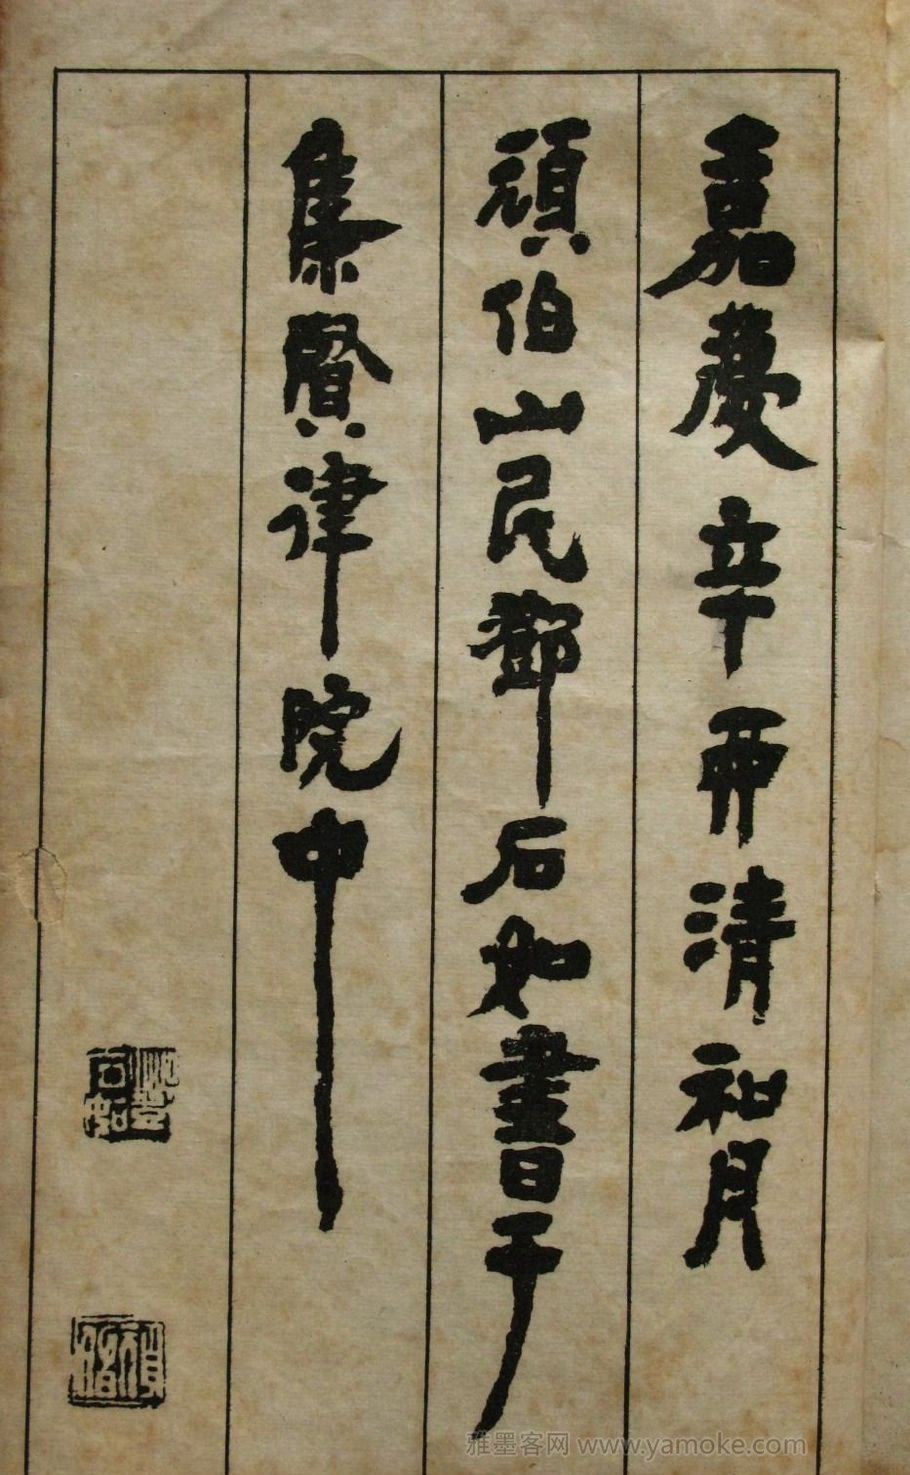 嘉慶辛酉清和月
頑伯山民鄧石如書于
集賢律院中
頑伯
雅墨客网 www.yamoke.com